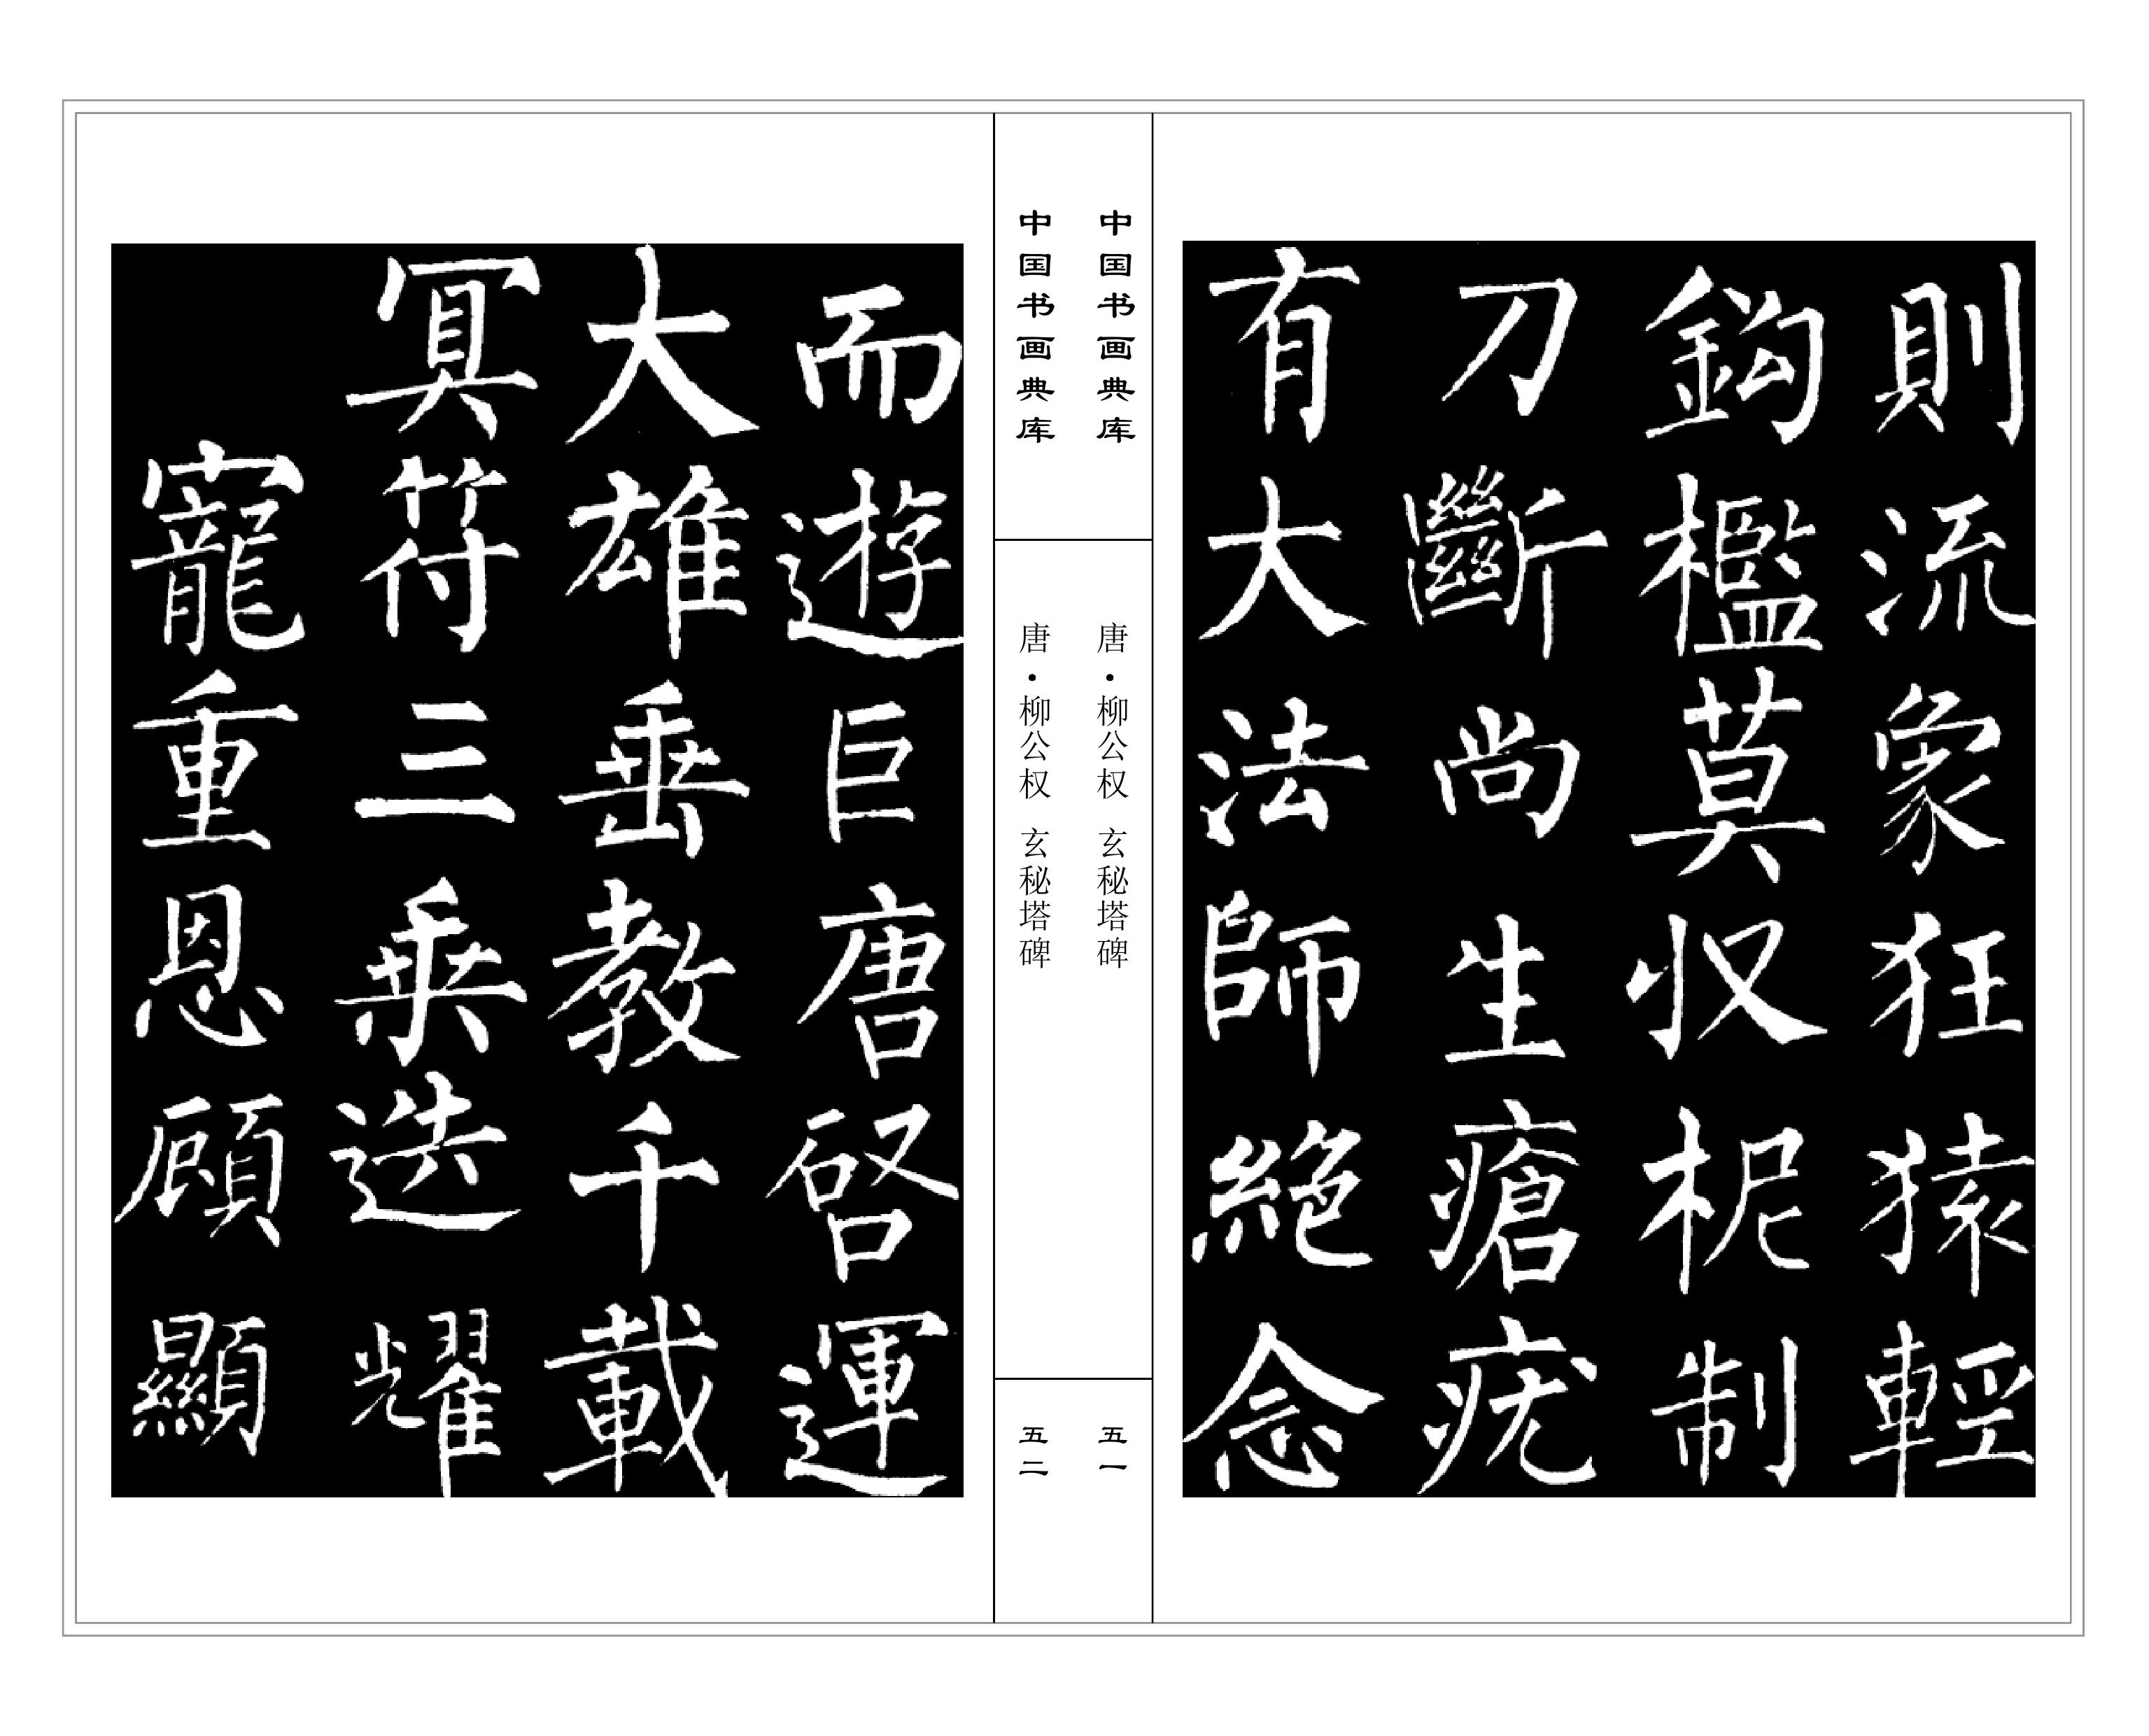 則流象狂猿輕
鈎檻莫収柅制
刀斷尚生瘡疣
有大法師絕念
中国书画典库
唐·柳公权 玄秘塔碑
五一
中国书画典库
唐·柳公权 玄秘塔碑
五二
而遊巨唐啓運
大雄垂教千載
冥符三乘迭耀
寵重恩顧顯